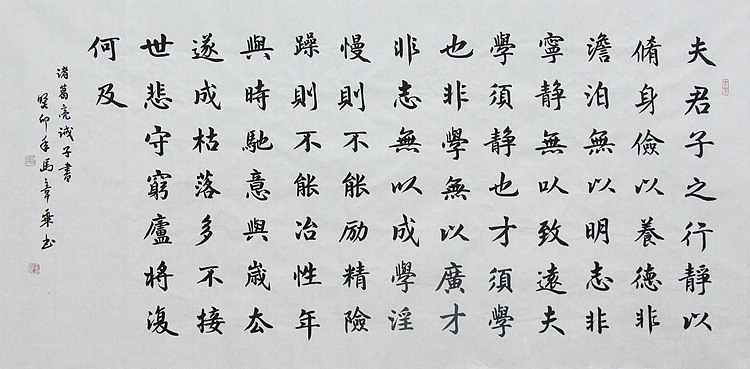 夫君子之行靜以
脩身儉以養德非
澹泊無以明志非
寧静無以致遠夫
學須静也才須學
也非學無以廣才
非志無以成學淫
慢則不能励精險
躁則不能冶性年
與時馳意與歲厺
遂成枯落多不接
世悲守窮廬将復
何及
诸葛亮诫子書
癸卯年馬章乘书